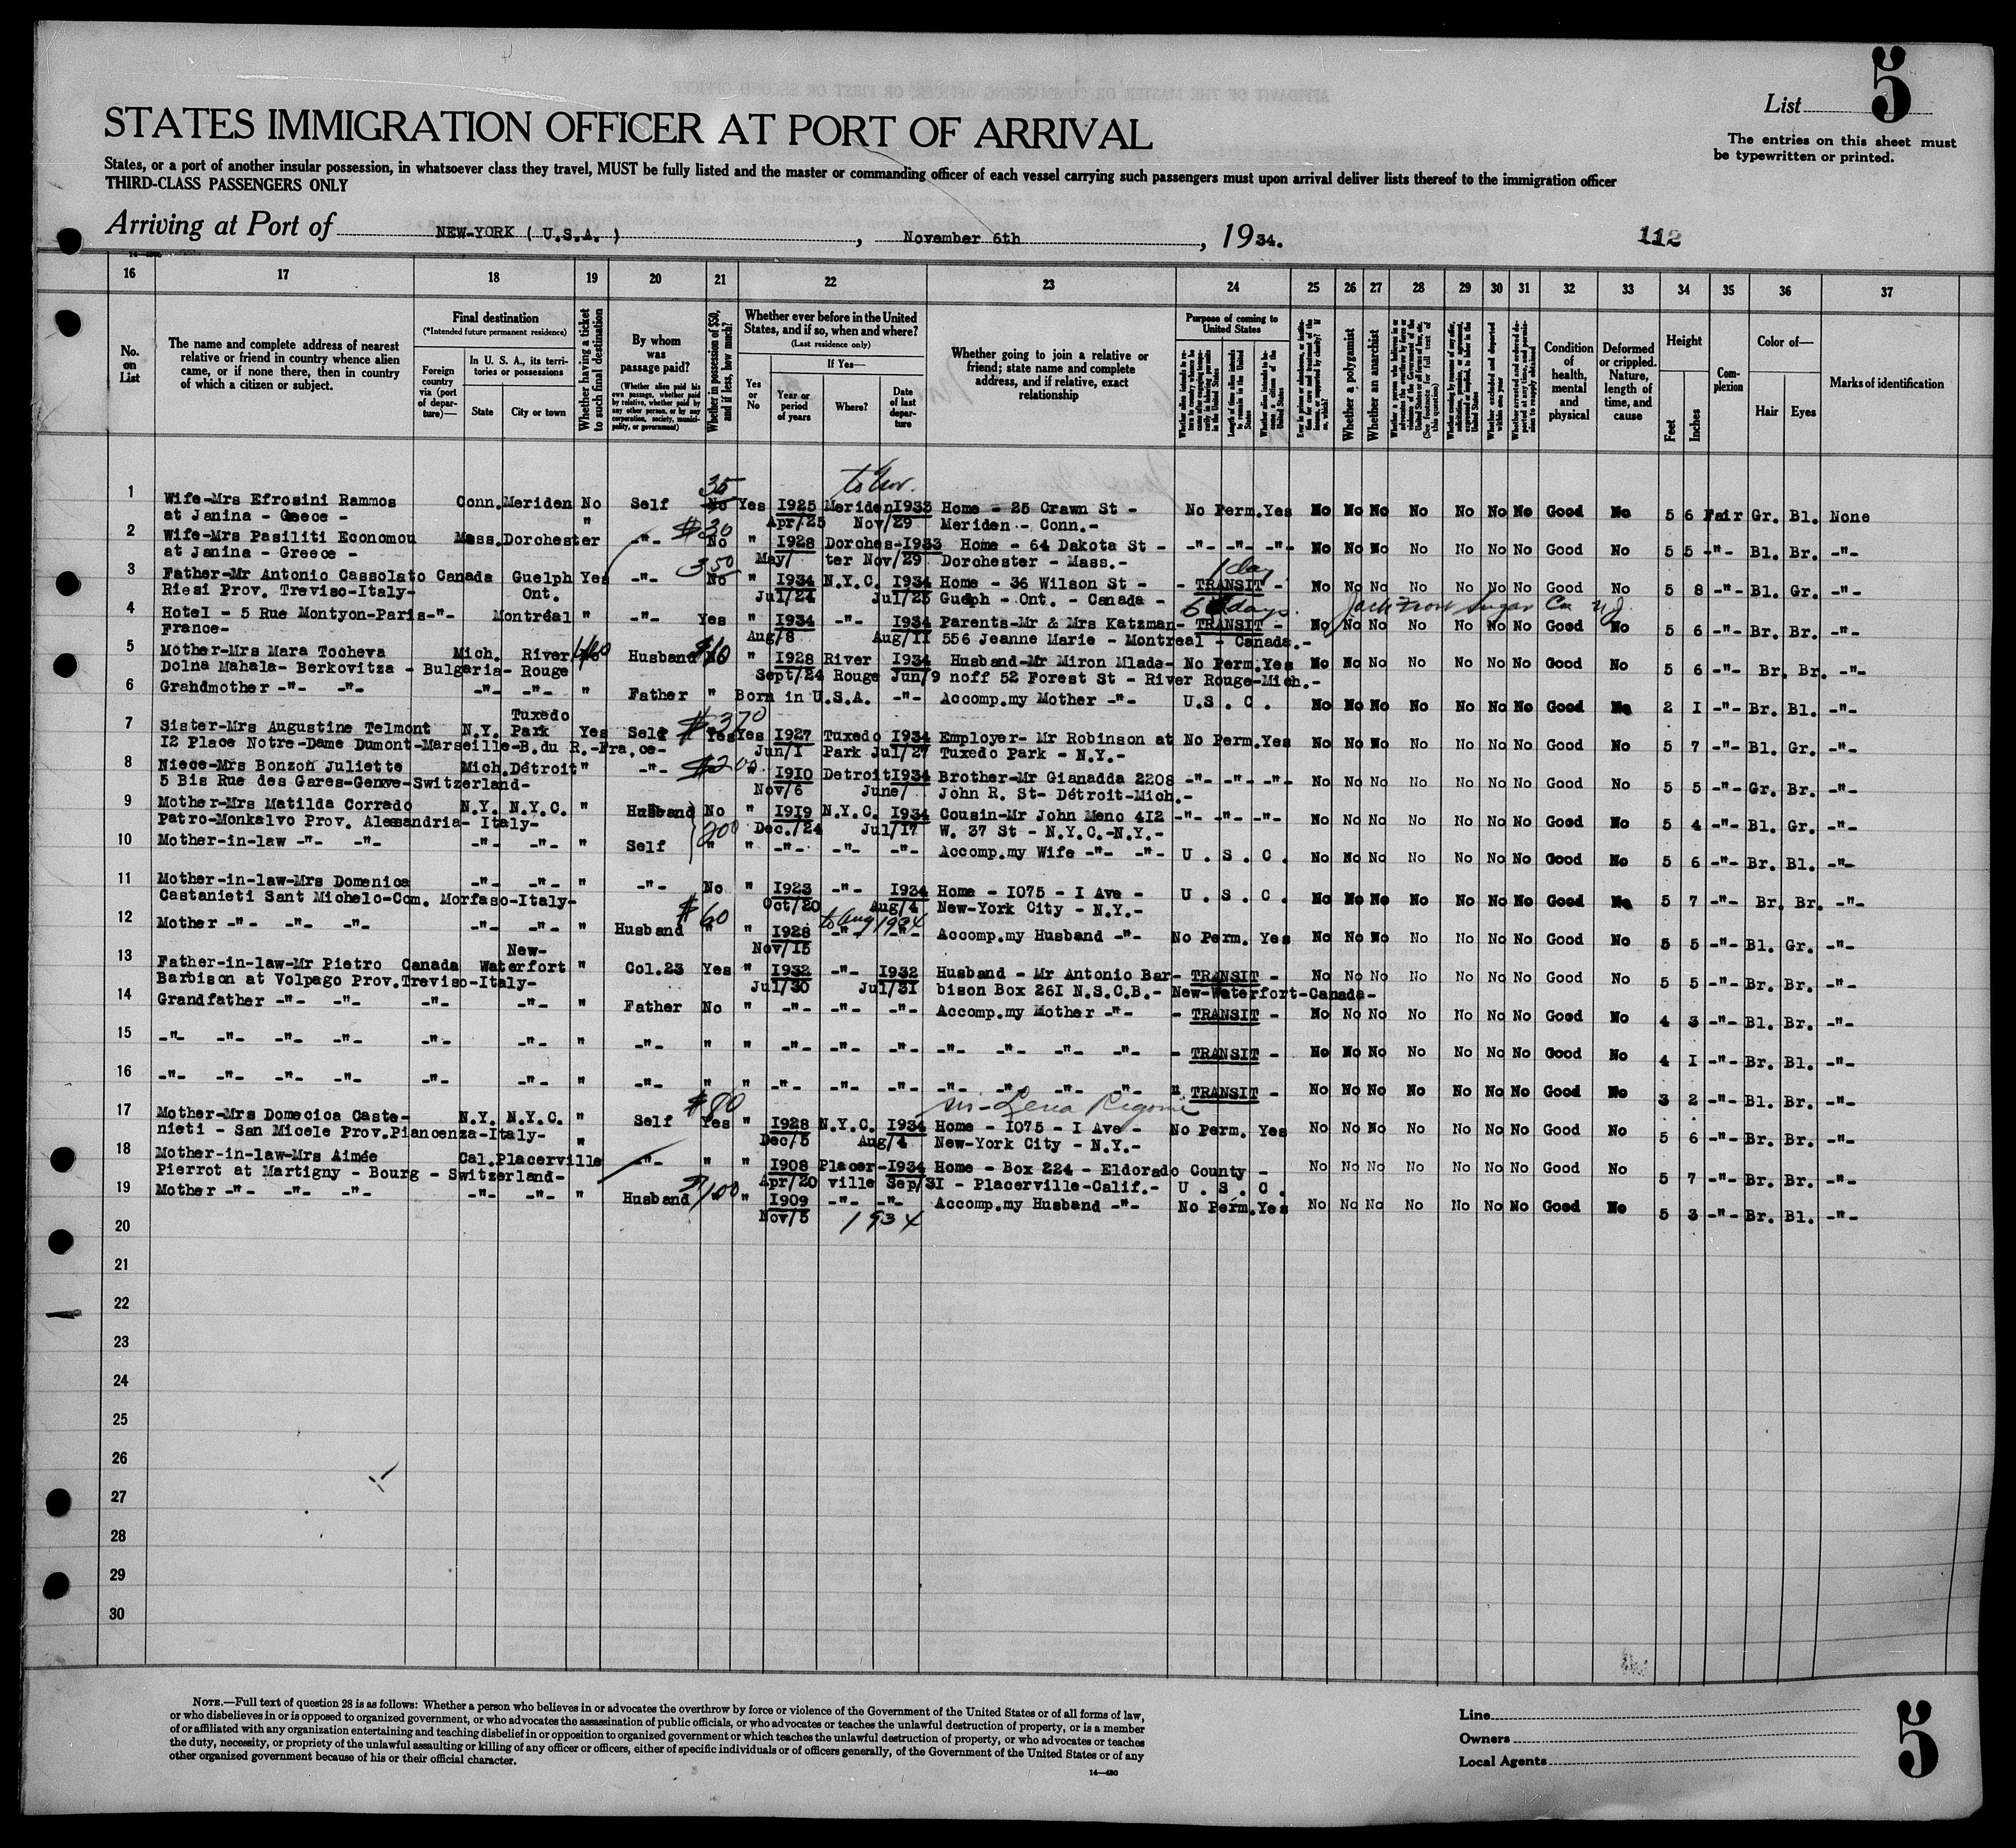 List 5
STATES IMMIGRATION OFFICER AT PORT OF ARRIVAL
The entries on this sheet must
be typewritten or printed.
States, or a port of another insular possession, in whatsoever class they travel, MUST be fully listed and the master or commanding officer of each vessel carrying such passengers must upon arrival deliver lists thereof to the immigration officer
THIRD-CLASS PASSENGERS ONLY
Arriving at Port of NEW-YORK ( U.S.A. ) , November 6th , 1934.
112
16 17 18 19 20 21 22 23 24 25 26 27 28 29 30 31 32 33 34 35 36 37
No. on List
The name and complete address of nearest relative or friend in country whence alien came, or if none there, then in country of which a citizen or subject.
Final destination
(*Intended future permanent residence)
Foreign country via (port of departure)—
In U. S. A., its territories or possessions
State
City or town
Whether having a ticket to such final destination
By whom was passage paid?
(Whether alien paid his own passage, whether paid by relative, whether paid by any other person, or by any corporation, society, municipality, or government)
Whether in possession of $50, and if less, how much?
Whether ever before in the United States, and if so, when and where?
(Last residence only)
Yes or No
If Yes—
Year or period of years
Where?
Date of last departure
Whether going to join a relative or friend; state name and complete address, and if relative, exact relationship
Purpose of coming to United States
Length of time alien intends to remain in the United States
Whether alien intends to become a citizen of the United States
Whether a polygamist
Whether an anarchist
(See footnote for full text of this question)
Whether excluded and deported within one year
Condition of health, mental and physical
Deformed or crippled. Nature, length of time, and cause
Height
Feet
Inches
Complexion
Color of—
Hair
Eyes
Marks of identification
35 to Nov.
1 Wife-Mrs Efrosini Rammos Conn. Meriden No Self No Yes I925 Meriden I933 Home - 25 Crawn St - No Perm. Yes No No No No No No No Good No 5 6 Fair Gr. Bl. None
at Janina - Geece - " Apr/25 Nov/29 Meriden - Conn.-
$30
2 Wife-Mrs Pasiliti Economou Mass. Dorchester -"- No " I928 Dorches-I933 Home - 64 Dakota St - -"- -"- -"- No No No No No No No Good No 5 5 -"- Bl. Br. -"-
at Janina - Greece - May/ ter Nov/29 Dorchester - Mass.-
350 1 day
3 Father-Mr Antonio Cassolato Canada Guelph Yes -"- No " I934 N.Y.C. I934 Home - 36 Wilson St - - TRANSIT - No No No No No No No Good No 5 8 -"- Bl. Gr. -"-
Riesi Prov. Treviso-Italy- Ont. Jul/24 Jul/25 Guelph - Ont. - Canada -
60 days. Sugar Co NJ.
4 Hotel - 5 Rue Montyon-Paris-"- Montréal " -"- Yes " I934 -"- I934 Parents-Mr & Mrs Katzman- TRANSIT - No No No No No No No Good No 5 6 -"- Br. Br. -"-
France- Aug/8 Aug/II 556 Jeanne Marie - Montreal - Canada.-
5 Mother-Mrs Mara Tocheva Mich. River No Husband $10 " I928 River I934 Husband-Mr Miron Mlade- No Perm. Yes No No No No No No No Good No 5 6 -"- Br. Br. -"-
Dolna Mahala- Berkovitza - Bulgaria- Rouge Sept/24 Rouge Jun/9 noff 52 Forest St - River Rouge-Mich.-
6 Grandmother -"- -"- -"- -"- " Father " Born in U.S.A. -"- Accomp.my Mother -"- U.S. C. No No No No No No No Good No 2 I -"- Br. Bl. -"-
Tuxedo $370
7 Sister-Mrs Augustine Telmont N.Y. Park Yes Self Yes Yes I927 Tuxedo I934 Employer- Mr Robinson at No Perm. Yes No No No No No No No Good No 5 7 -"- Bl. Gr. -"-
I2 Place Notre-Dame Dumont-Marseille-B.du R.-Fra,ce- Jun/I Park Jul/27 Tuxedo Park - N.Y.-
8 Niece-Mrs Bonzon Juliette Mich. Détroit " -"- $200 " I9I0 Detroit I934 Brother-Mr Gianadda 2208 -"- -"- -"- No No No No No No No Good No 5 5 -"- Gr. Br. -"-
5 Bis Rue des Gares-Genve-Switzerland- Nov/6 June/ John R. St- Détroit-Mich.-
9 Mother-Mrs Matilda Corrado N.Y. N.Y.C. " Husband No " I9I9 N.Y.C. I934 Cousin-Mr John Meno 4I2 -"- -"- -"- No No No No No No No Good No 5 4 -"- Bl. Gr. -"-
Patro-Monkalvo Prov. Alessandria- Italy- 200 Dec./24 Jul/I7 W. 37 St - N.Y.C.-N.Y.-
10 Mother-in-law -"- -"- -"- -"- " Self " " -"- -"- -"- Accomp.my Wife -"- -"- U . S . C . No No No No No No No Good No 5 6 -"- Br. Bl. -"-
11 Mother-in-law-Mrs Domenica -"- -"- " -"- No " I923 -"- I934 Home - I075 - I Ave - U . S . C . No No No No No No No Good No 5 7 -"- Br. Br. -"-
Castanieti Sant Michelo-Com. Morfaso-Italy- Oct/20 Aug/4 New-York City - N.Y.-
$60 to Aug 1934
12 Mother -"- -"- -"- -"- -"- " Husband " " I928 -"- -"- Accomp.my Husband -"- No Perm. Yes No No No No No No No Good No 5 5 -"- Bl. Gr. -"-
New- Nov/I5
13 Father-in-law-Mr Pietro Canada Waterfort " Col.23 Yes " I932 -"- I932 Husband - Mr Antonio Bar- - TRANSIT - No No No No No No No Good No 5 5 -"- Br. Br. -"-
Barbison at Volpago Prov.Treviso-Italy- Jul/30 Jul/3I bison Box 26I N.S.C.B.- New-Waterfort-Canada-
14 Grandfather -"- -"- -"- -"- " Father No " -"- -"- -"- Accomp.my Mother -"- - TRANSIT - No No No No No No No Good No 4 3 -"- Bl. Br. -"-
15 -"- -"- -"- -"- -"- -"- " -"- " " -"- -"- -"- -"- -"- -"- -"- - TRANSIT - No No No No No No No Good No 4 I -"- Br. Bl. -"-
16 -"- -"- -"- -"- -"- -"- " -"- " " -"- -"- -"- -"- -"- -"- -"- " TRANSIT - No No No No No No No Good No 3 2 -"- Bl. Br. -"-
$80 sis-Lena Rigoni
17 Mother-Mrs Domecica Caste- N.Y. N.Y.C. " Self Yes " I928 N.Y.C. I934 Home - I075 - I Ave - No Perm. Yes No No No No No No No Good No 5 6 -"- Br. Br. -"-
nieti - San Micele Prov.Piancenza-Italy- " Dec/5 Aug/4 New-York City - N.Y.-
18 Mother-in-law-Mrs Aimée Cal. Placerville -"- " " I908 Placer-I934 Home - Box 224 - Eldorado County - No No No No No No No Good No 5 7 -"- Br. Br. -"-
Pierrot at Martigny - Bourg - Switzerland- Apr/20 ville Sep/3I - Placerville-Calif.- U . S . C .
19 Mother -"- -"- -"- -"- -"- " Husband $100 " I909 -"- -"- Accomp.my Husband -"- No Perm. Yes No No No No No No No Good No 5 3 -"- Br. Bl. -"-
20 Nov/5 1934
21
22
23
24
25
26
27
28
29
30
NOTE.—Full text of question 28 is as follows: Whether a person who believes in or advocates the overthrow by force or violence of the Government of the United States or of all forms of law,
or who disbelieves in or is opposed to organized government, or who advocates the assassination of public officials, or who advocates or teaches the unlawful destruction of property, or is a member
of or affiliated with any organization entertaining and teaching disbelief in or opposition to organized government or which teaches the unlawful destruction of property, or who advocates or teaches
the duty, necessity, or propriety of the unlawful assaulting or killing of any officer or officers, either of specific individuals or of officers generally, of the Government of the United States or of any
other organized government because of his or their official character.
14—430
Line
Owners
Local Agents
5